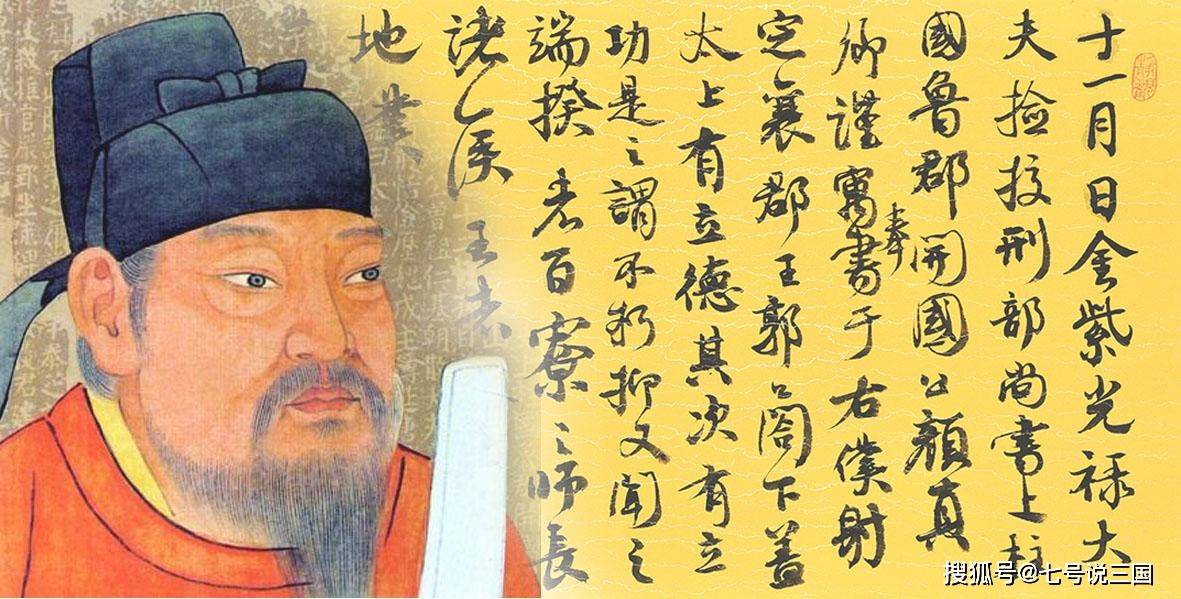 十一月日金紫光禄大
夫捡挍刑部尚書上柱
國魯郡開國公顔真
卿謹寓書于右僕射
奉
定襄郡王郭公閤下盖
太上有立德其次有立
功是之謂不朽抑又聞之
端揆者百寮之師長
諸侯王者
地業
搜狐号@七号说三国